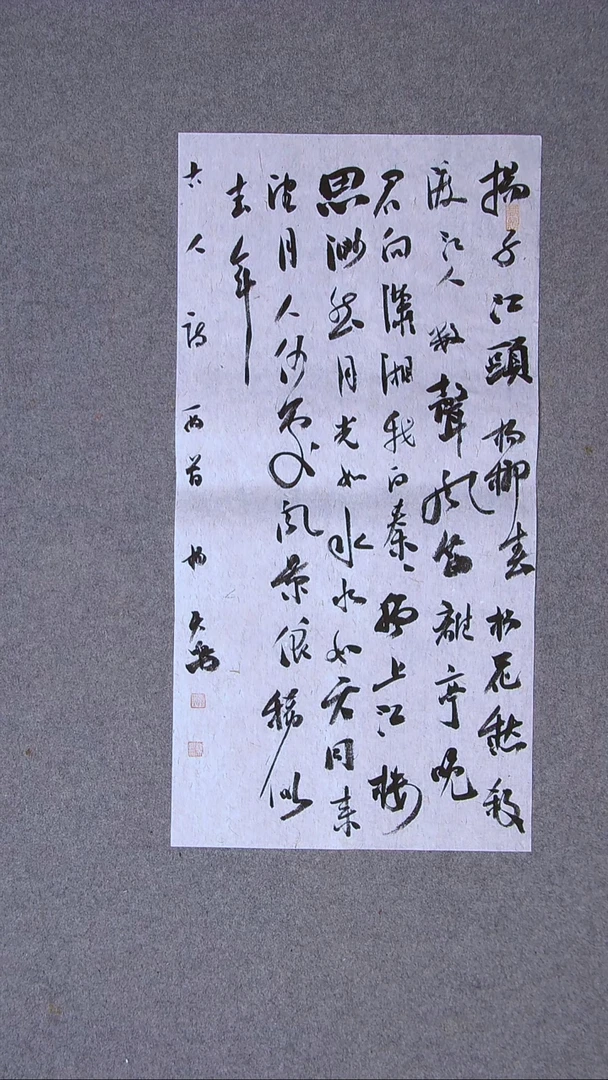 揚子江頭楊柳春楊花愁殺
渡江人數聲風笛離亭晚
君向瀟湘我向秦獨上江樓
思渺然月光如水水如天同來
望月人何處風景依稀似
去年
古人詩兩首 楊